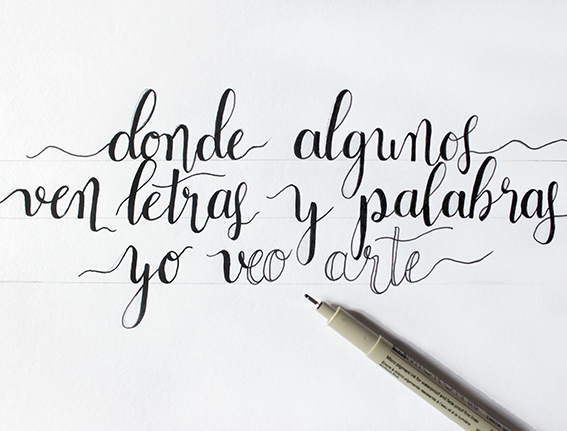 donde algunos
ven letras y palabras
yo veo arte